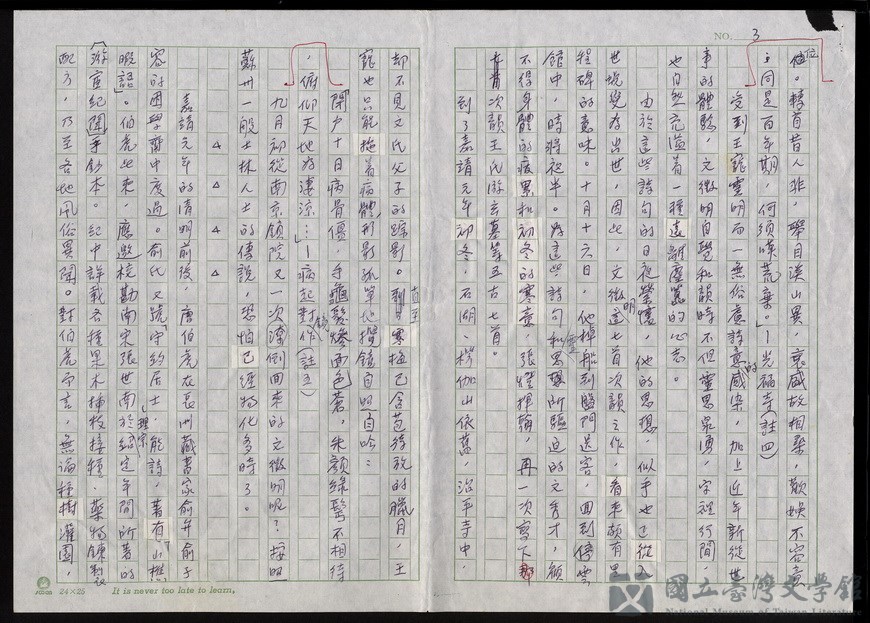 NO. 3
位。轉首昔人非，舉目溪山異，衰盛故相乘，歡娛不容意
，同是百年期，何須嘆荒棄。」─光福寺（註四）
受到王寵靈明而一無俗慮詩意的感染，加上近年新從世
事的體驗，文徵明自覺和韻時不但靈思泉湧，字裡行間，
也自然充溢着一種遠離塵囂的心志。
由於這些詩句的日夜縈懷，他的思想，似乎也已從入
世境變為出世，因此，文徵明這七首次韻之作，看來頗有里
程碑的意味。十月十六日，他棹船到盤門送客，回到停雲
館中，時將夜半。為這些詩句和思想所驅迫的文秀才，顧
不得身體的疲累和初冬的寒意，張燈揮翰，再一次寫下
次韻王氏游玄墓等五古七首。
到了嘉靖元年初冬，石湖、楞伽山依舊，治平寺中，
却不見文氏父子的踪影。直至寒梅已含苞待放的臘月，王
寵也只能拖着病體，形影孤單地攬鏡自吟：
「閉戶十日病骨僵，手龜髮燥面色蒼，朱顏綠鬢不相待
，俯仰天地為凄涼…」─病起對鏡作（註五）
九月初從南京鎖院又一次潦倒回來的文徵明呢？按照
蘇州一般士林人士的傳說，恐怕已經物化多時了。
△ △ △ △
嘉靖元年的清明前後，唐伯虎在長洲藏書家俞弁俞子
容的困學齋中度過。俞氏又號守約居士，能詩，著有「山樵
暇語」。伯虎此來，應邀校勘南宋張世南於理宗紹定年間所著的
「游宦紀聞」手鈔本。紀中詳載各種果木插枝接種、藥物鍊製
配方，乃至各地風俗異聞。對伯虎而言，無論種樹灌園，
24×25
It is never too late to learn.
國立臺灣文學館
National Museum of Taiwan Literature